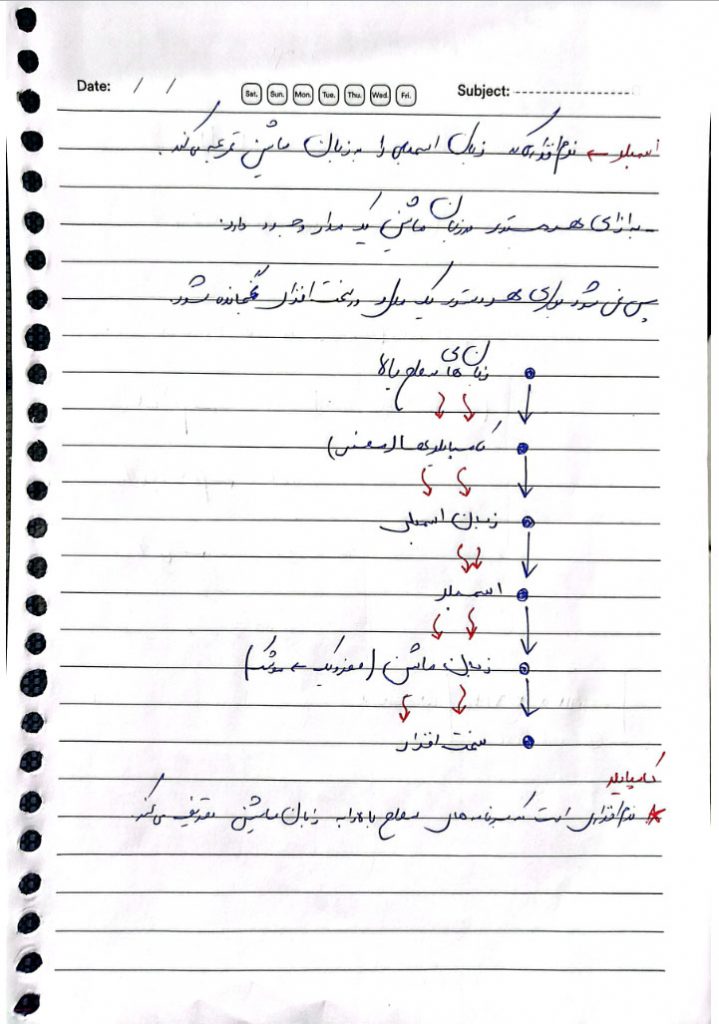 Date: / /
Sat. Sun. Mon. Tue. Thu. Wed. Fri.
Subject:
اسمبلر ← نرم افزاری که زبان اسمبلی را به زبان ماشین ترجمه می کند.
به ازای هر دستور در زبان ماشین یک مدار وجود دارد.
پس می شود برای هر دستور یک مدار در سخت افزار گنجانده شود
زبان های سطح بالا
کامپایلرها
زبان اسمبلی
اسمبلر
زبان ماشین (صفر و یک ←
سخت افزار
کامپایلر
* نرم افزاری است که برنامه های سطح بالا را به زبان ماشین تعریف می کند.